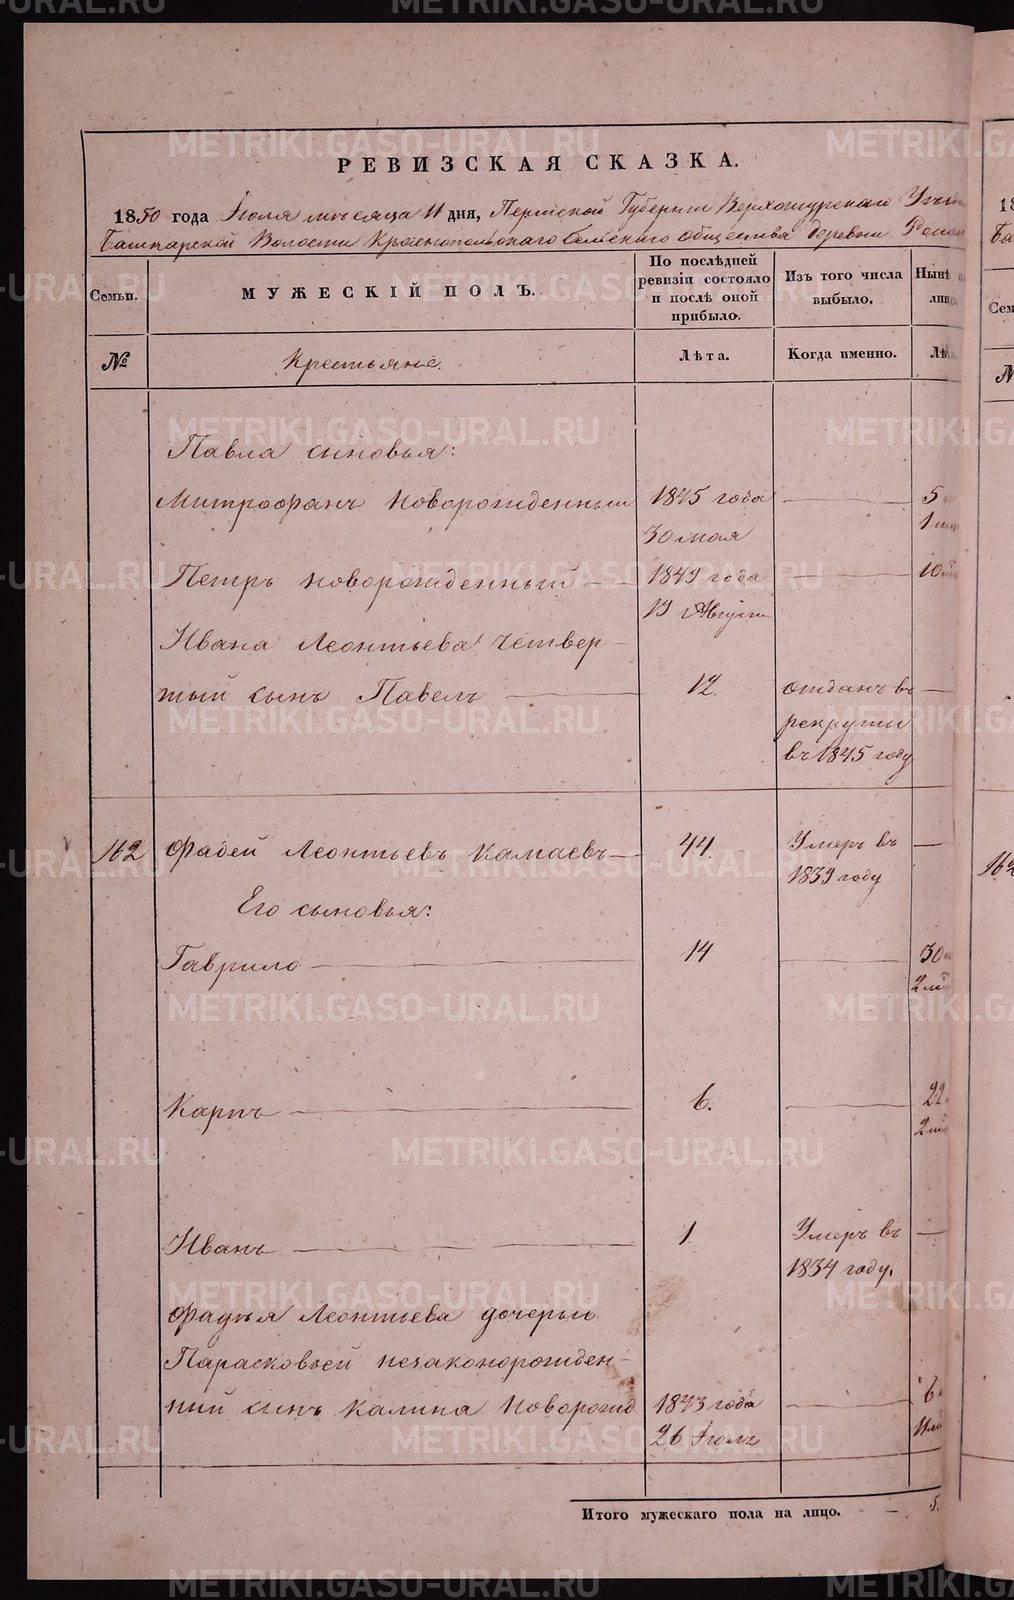 РЕВИЗСКАЯ СКАЗКА.
1850 года Іюля мѣсяца 11 дня, Пермской Губерніи Верхотурскаго
Башкарской Волости Краснопольскаго Сельскаго общества деревни
Семьи. МУЖЕСКІЙ ПОЛЪ. По послѣдней ревизіи состояло и послѣ оной прибыло. Изъ того числа выбыло. Нынѣ на лицо.
№ Крестьяне. Лѣта. Когда именно. Лѣ
Павла сыновья:
Митрофанъ новорожденный 1845 года 5
30 мая 1
Петръ новорожденный 1849 года 10
19 Августа
Ивана Леонтьева четвер-
тый сынъ Павелъ 12. отданъ въ
рекруты
въ 1845 году
162 Фадей Леонтьевъ Камаевъ 44. Умеръ въ
1839 году
Его сыновья:
Гаврило 14 30
2
Карпъ 6. 22
2
Иванъ 1 Умеръ въ
1834 году.
Фадѣя Леонтьева дочерью
Парасковьей незаконорожден-
ный сынъ Калина новорожд 1843 года 6
26 Іюля 11
Итого мужескаго пола на лицо. 5.
METRIKI.GASO-URAL.RU